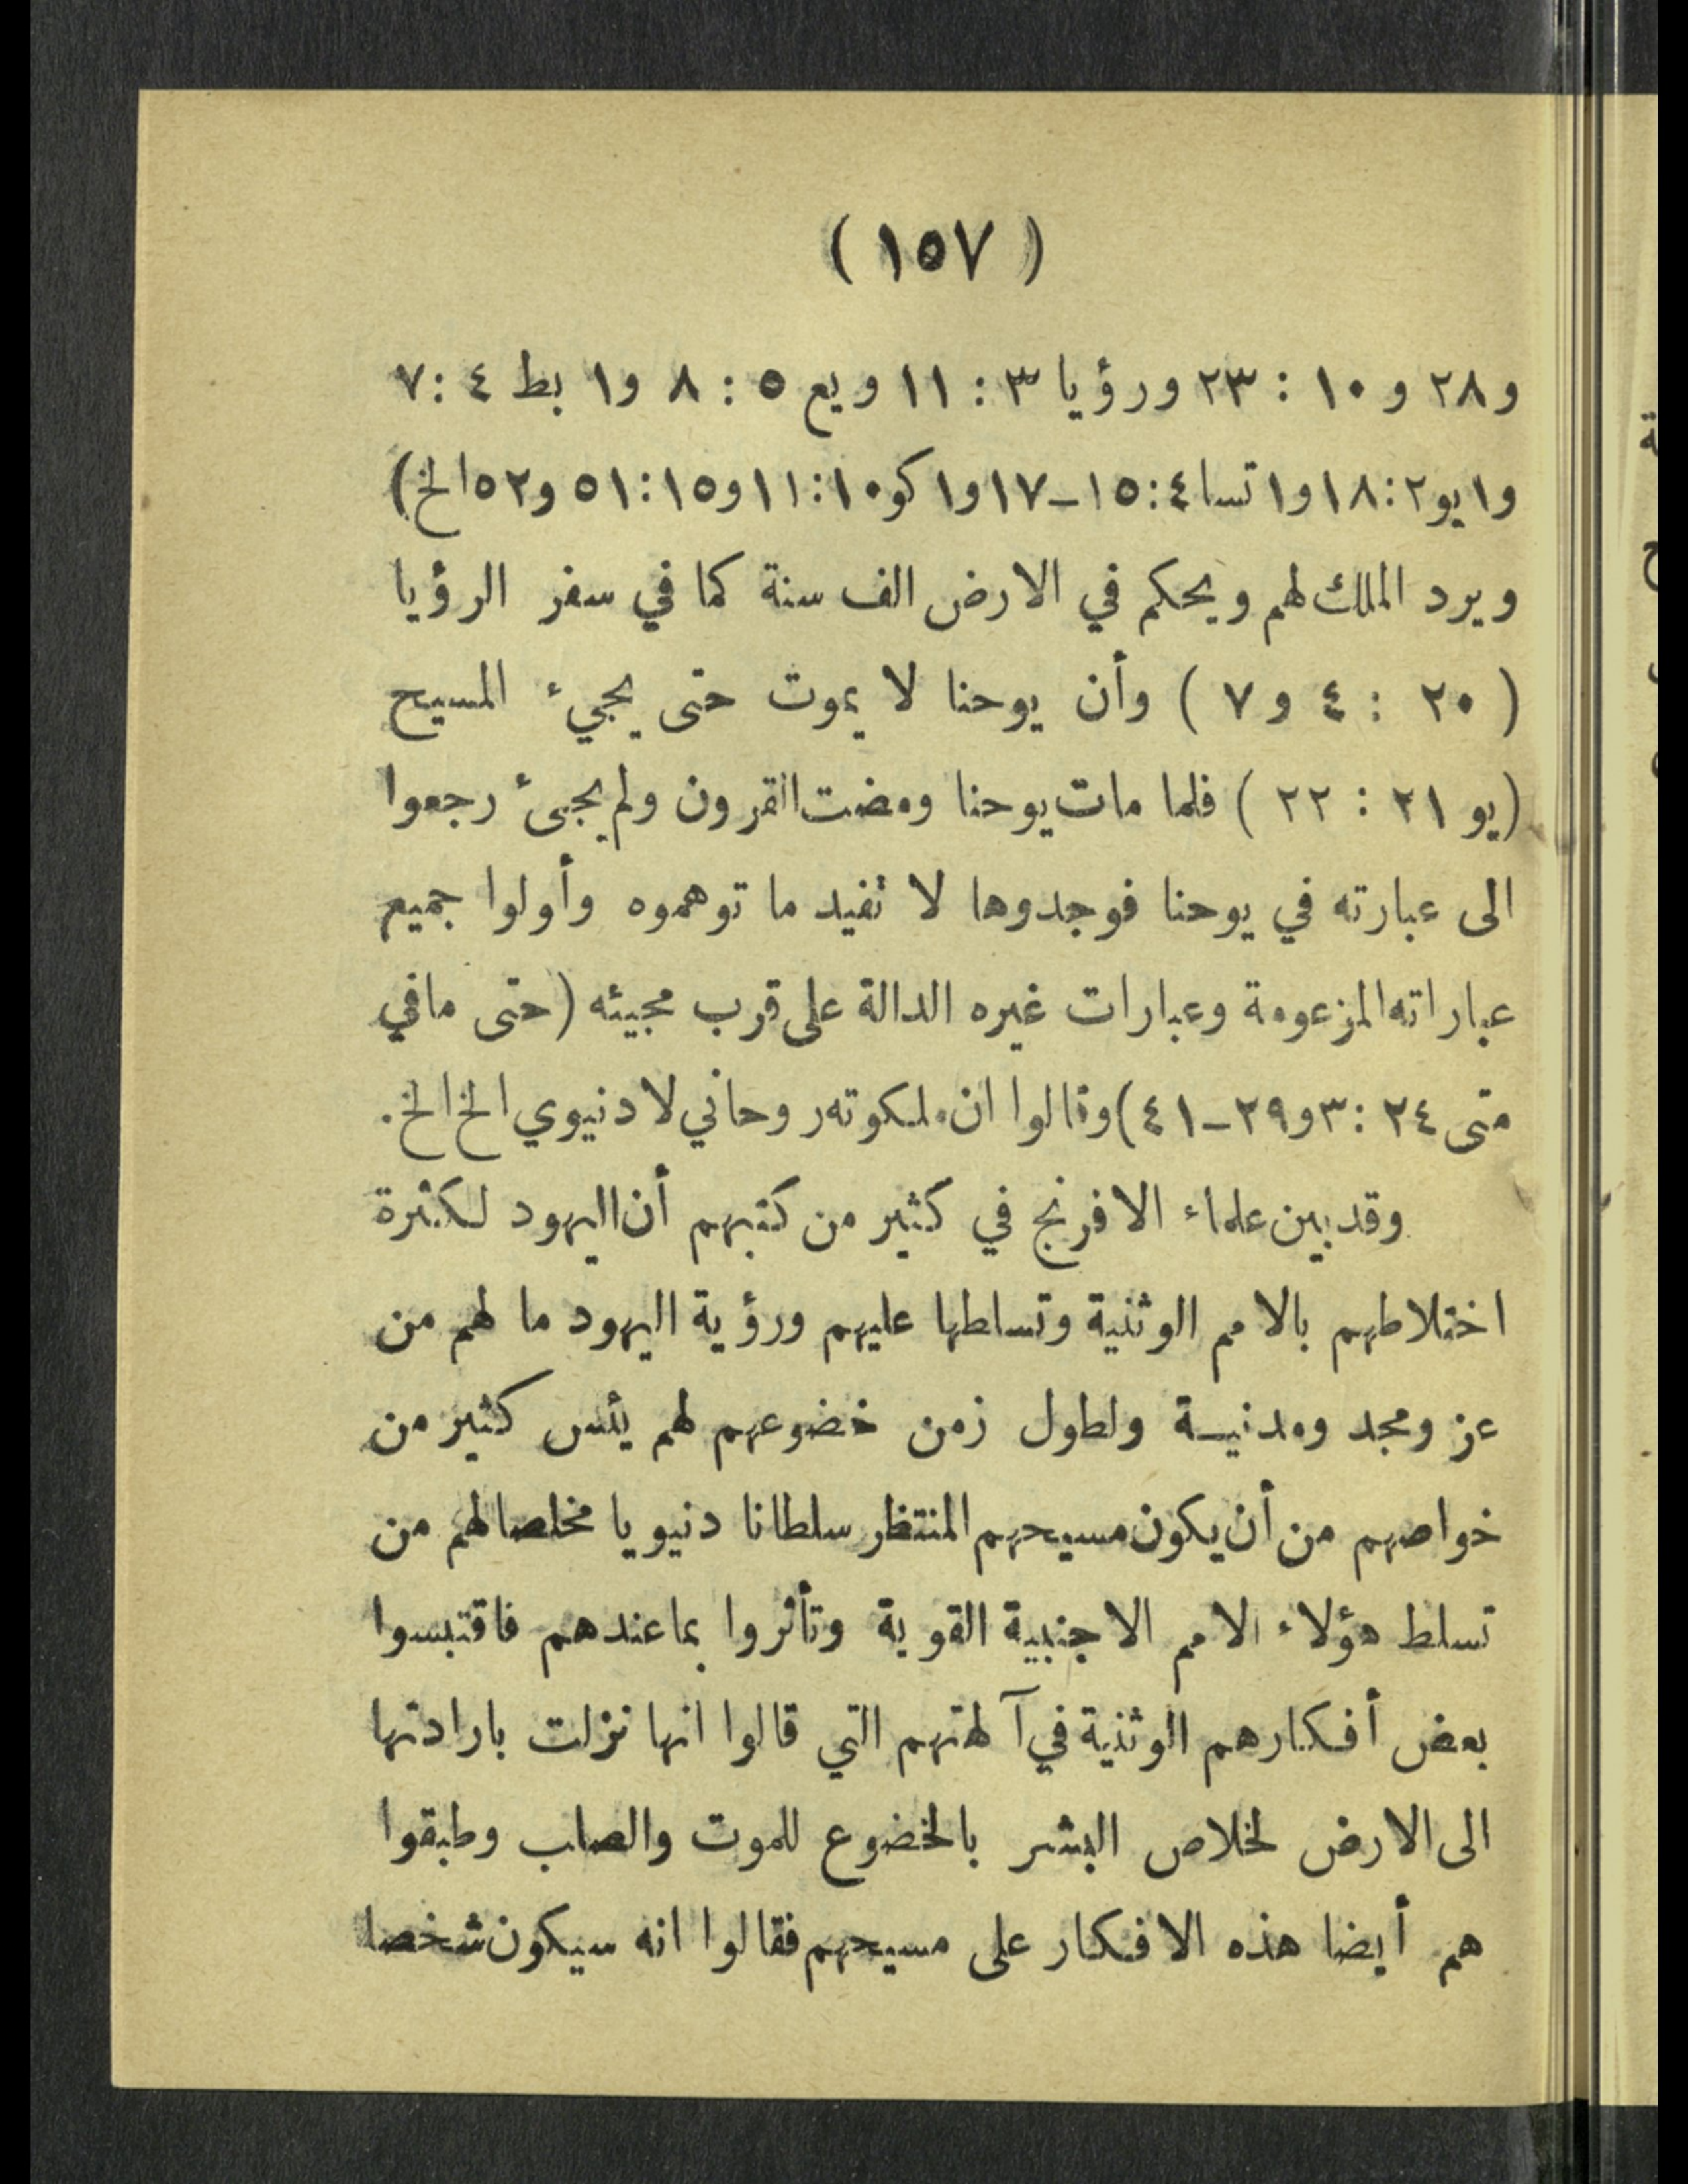 ( ١٥٧ )
و ٢٨ و ١٠ : ٢٣ ورؤيا ٣ : ١١ ويع ٥ : ٨ و١ بط ٤ : ٧
و١ يو ٢ : ١٨ و١ تسا ٤ : ١٥ – ١٧ و١ كو ١٠ : ١١ و١٥ : ٥١ و٥٢ الخ )
ويرد الملك لهم ويحكم في الارض الف سنة كما في سفر الرؤيا
( ٢٠ : ٤ و ٧ ) وأن يوحنا لا يموت حتى يجيء المسيح
( يو ٢١ : ٢٢ ) فلما مات يوحنا ومضت القرون ولم يجئ رجعوا
الى عبارته في يوحنا فوجدوها لا تفيد ما توهموه وأولوا جميع
عباراته المزعومة وعبارات غيره الدالة على قرب مجيئه ( حتى ما في
متى ٢٤ : ٣ و٢٩ – ٤١ ) وقالوا ان ملكوته روحاني لا دنيوي الخ الخ .
وقد بين علماء الافرنج في كثير من كتبهم أن اليهود لكثرة
اختلاطهم بالامم الوثنية وتسلطها عليهم ورؤية اليهود ما لهم من
عز ومجد ومدنية ولطول زمن خضوعهم لهم يئس كثير من
خواصهم من أن يكون مسيحهم المنتظر سلطانا دنيويا مخلصا لهم من
تسلط هؤلاء الامم الاجنبية القوية وتأثروا بما عندهم فاقتبسوا
بعض أفكارهم الوثنية في آلهتهم التي قالوا انها نزلت بارادتها
الى الارض لخلاص البشر بالخضوع للموت والصلب وطبقوا
هم أيضا هذه الافكار على مسيحهم فقالوا انه سيكون شخصا